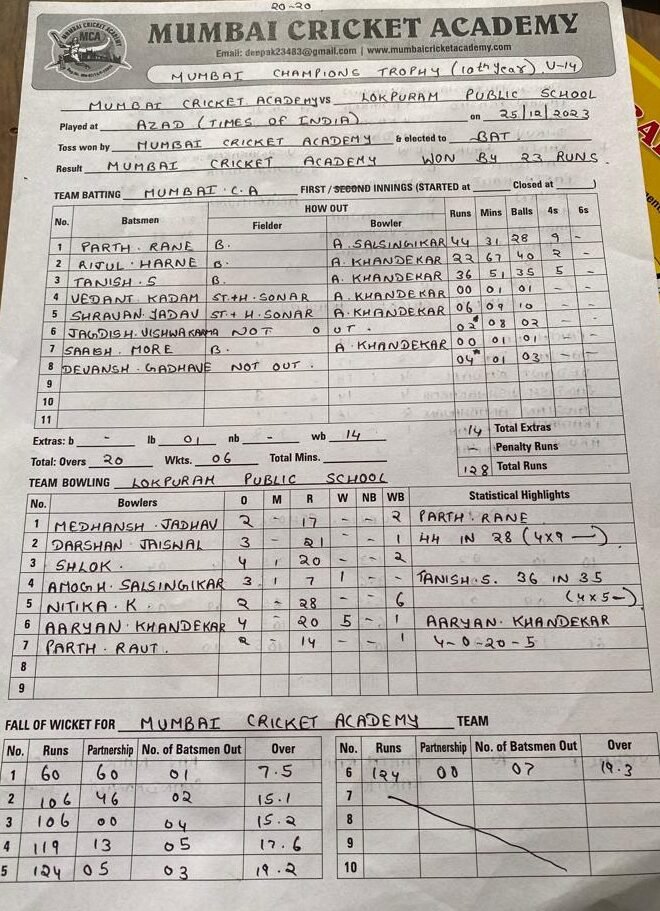 20-20
MUMBAI CRICKET ACADEMY
MUMBAI CRICKET ACADEMY
MCA
Email: deepak23483@gmail.com | www.mumbaicricketacademy.com
MUMBAI CHAMPIONS TROPHY (10th Year) U-14
MUMBAI CRICKET ACADEMY vs LOKPURAM PUBLIC SCHOOL
Played at AZAD (TIMES OF INDIA) on 25/12/2023
Toss won by MUMBAI CRICKET ACADEMY & elected to BAT
Result MUMBAI CRICKET ACADEMY WON BY 23 RUNS.
TEAM BATTING MUMBAI. C.A FIRST / SECOND INNINGS (STARTED at Closed at )
No. Batsmen HOW OUT Runs Mins Balls 4s 6s
Fielder Bowler
1 PARTH. RANE B. A. SALSINGIKAR 44 31 28 9 -
2 RIJUL. HARNE B. A. KHANDEKAR 22 67 40 2 -
3 TANISH. S B. A. KHANDEKAR 36 51 35 5 -
4 VEDANT. KADAM ST + H. SONAR A. KHANDEKAR 00 01 01 - -
5 SHRAVAN. JADAV ST + H. SONAR A. KHANDEKAR 06 09 10 - -
6 JAGDISH. VISHWAKARMA NOT OUT. 02* 08 02 - -
7 SAAISH. MORE B. A. KHANDEKAR 00 01 01 - -
8 DEVANSH. GADHAVE NOT OUT. 04* 01 03 - -
9
10
11
Extras: b - lb 01 nb - wb 14 14 Total Extras
- Penalty Runs
Total: Overs 20 Wkts. 06 Total Mins. 128 Total Runs
TEAM BOWLING LOKPURAM PUBLIC SCHOOL
No. Bowlers O M R W NB WB Statistical Highlights
1 MEDHANSH. JADHAV 2 - 17 - - 2 PARTH. RANE
2 DARSHAN. JAISWAL 3 - 21 - - 1 44 IN 28 (4x9 -)
3 SHLOK. 4 1 20 - - 2
4 AMOGH. SALSINGIKAR 3 1 7 1 - - TANISH. S. 36 IN 35
5 NITIKA. K. 2 - 28 - - 6 (4x5-)
6 AARYAN. KHANDEKAR 4 - 20 5 - 1 AARYAN. KHANDEKAR
7 PARTH. RAUT. 2 - 14 - - 1 4-0-20-5
8
9
FALL OF WICKET FOR MUMBAI CRICKET ACADEMY TEAM
No. Runs Partnership No. of Batsmen Out Over No. Runs Partnership No. of Batsmen Out Over
1 60 60 01 7.5 6 124 00 07 19.3
2 106 46 02 15.1 7
3 106 00 04 15.2 8
4 119 13 05 17.6 9
5 124 05 03 19.2 10